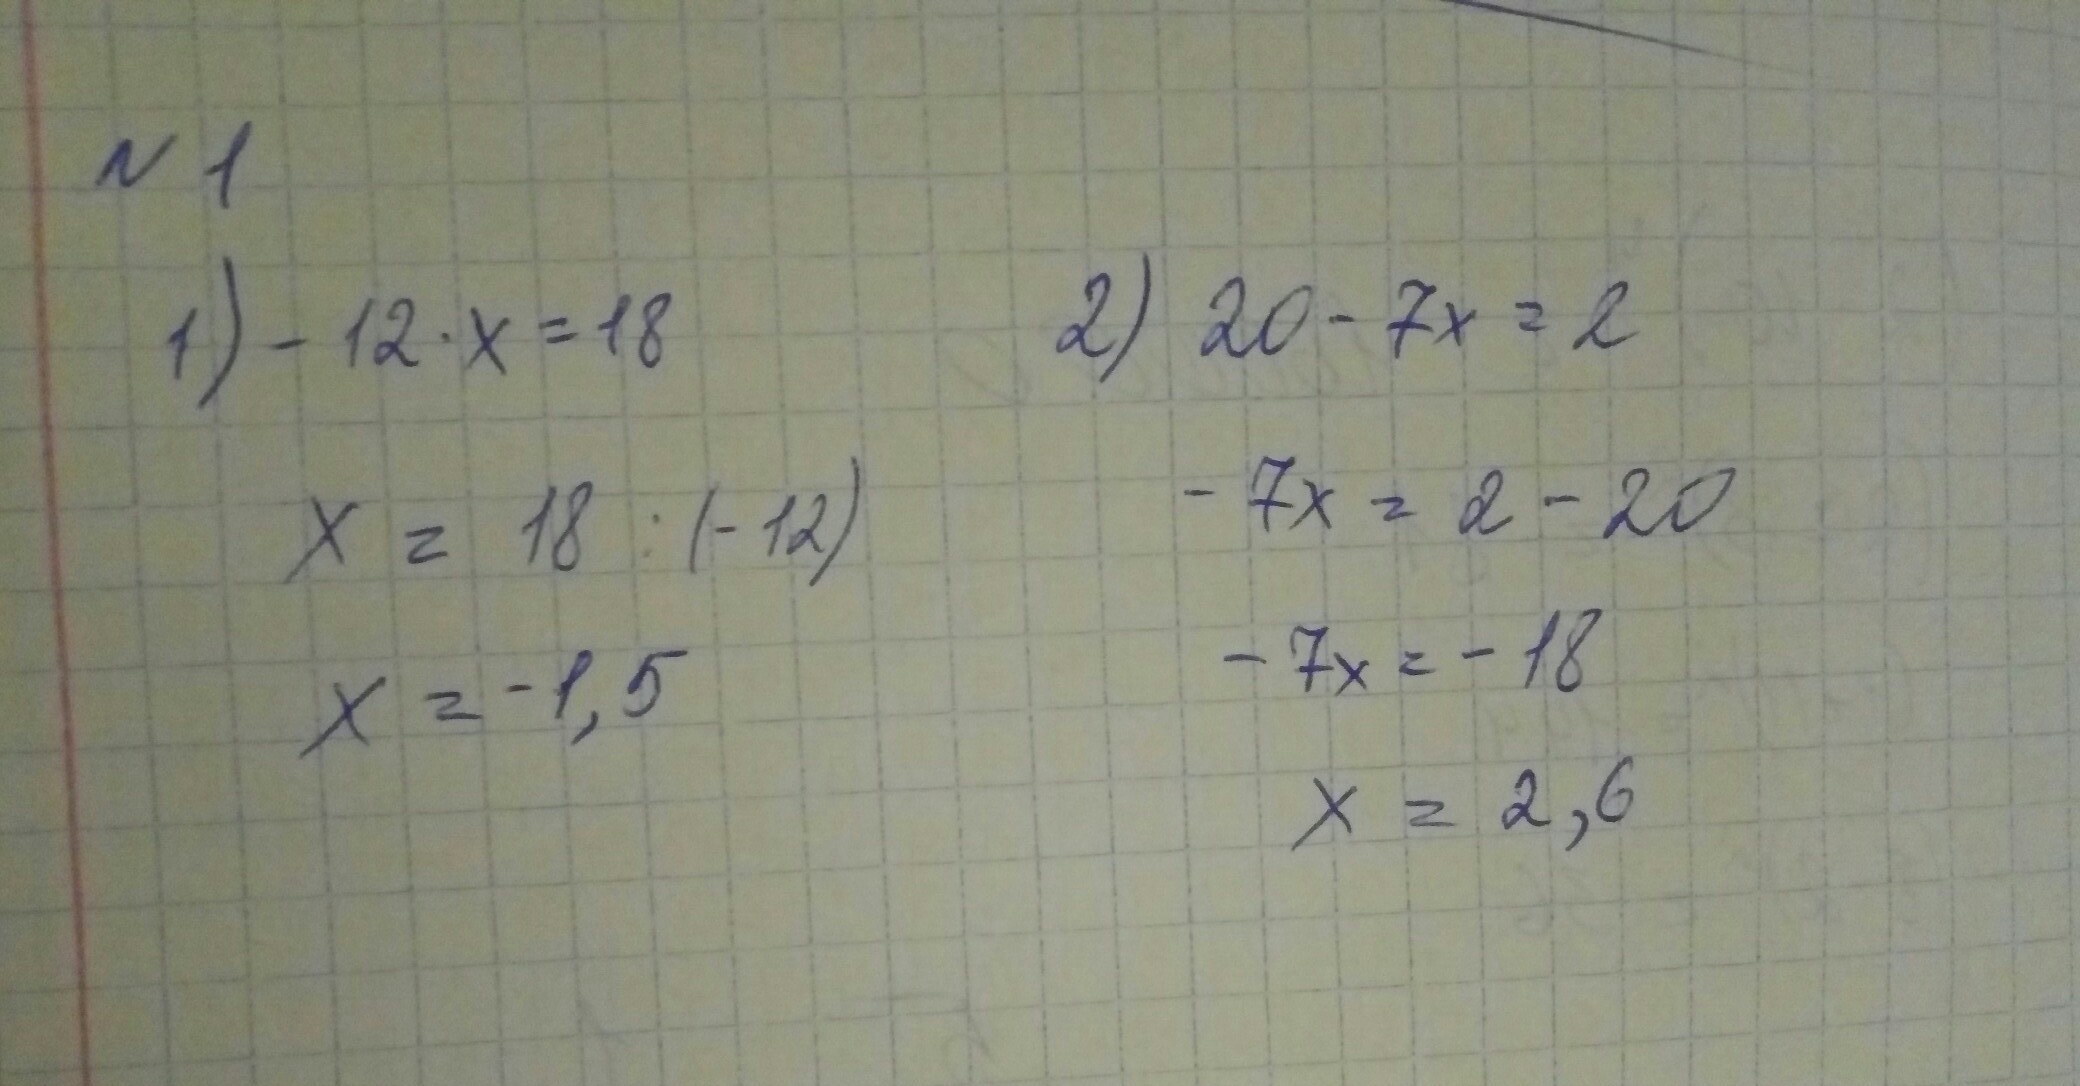 N 1
1) - 12 · x = 18
x = 18 : (-12)
x = -1,5
2) 20 - 7x = 2
- 7x = 2 - 20
- 7x = - 18
x = 2,6